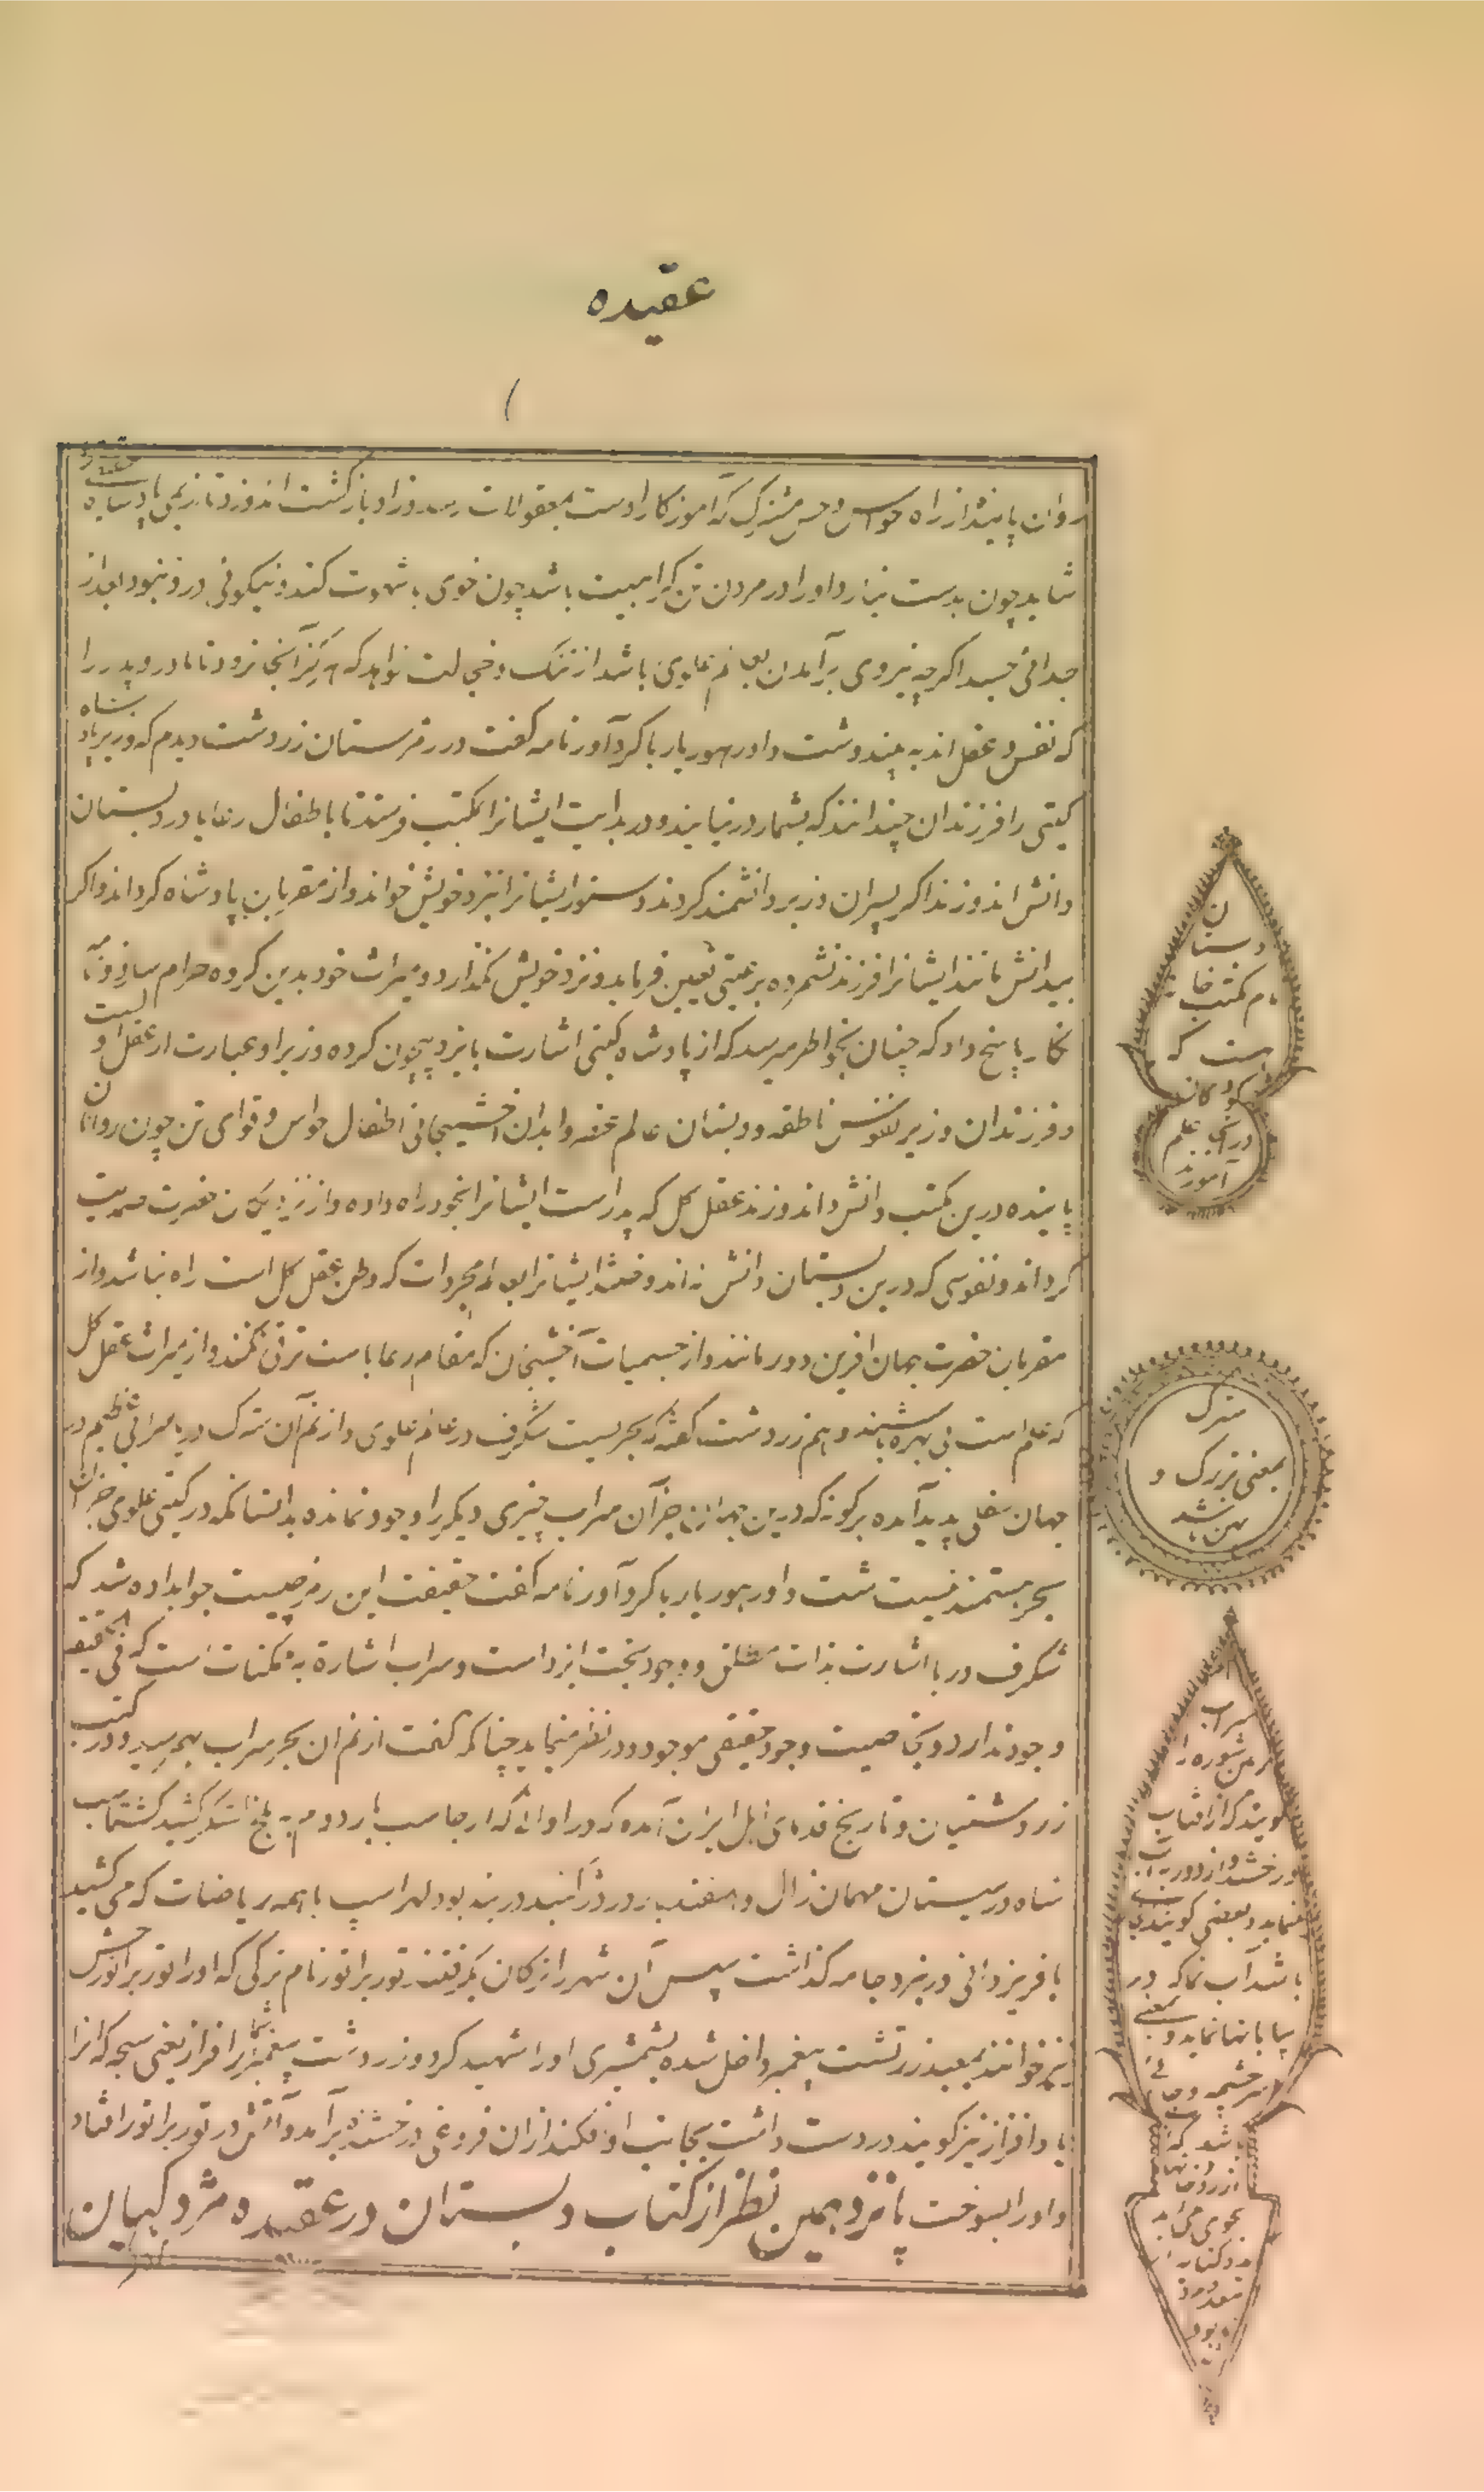 عقیده
روان پاینده از راه حواس و حس مشترک که آموزکار اوست بمعقولات رسد و زاد بازکشت اندوزد تا نزدیکی پادشاه
شاید چون بدست نیارد او را در مردن تن کراهیت باشد چون خوی با شهوت کند و نیکوئی درو نبود بعد از
جدائی جسد اکرچه نیروی برآمدن بعالم علوی باشد از ننک و خجالت نخواهد که هرکز آنجا نرود تا مادر و پدر را
که نفس و عقل اند به بیند و شت داور هوریار با کردآور نامه کفت در رمزستان زردشت دیدم که وزیر پادشاه
کیتی را فرزندان چندانند که بشمار درنیایند و در بدایت ایشانرا بمکتب فرستند تا با طفال رعایا در دبستان
دانش اندوزند اکر پسران وزیر دانشمند کردند دستور ایشانرا نزد خویش خواند و از مقربان پادشاه کرداند و اکر
بیدانش مانند ایشانرا فرزند نشمرده برعیتی تعیین فرماید و نزد خویش نکذارد و میراث خود بدین کروه حرام سازد
نکار پاسخ داد که چنان بخاطر میرسد که از پادشاه کیتی اشارت بایزد بیچون کرده وزیر او عبارت از عقل اول است
و فرزندان وزیر نفوس ناطقه و دبستان عالم عنصر و ابدان اخشیجانی اطفال حواس و قوای تن چون روانان
پاینده درین مکتب دانش اندوزند عقل کل که پدر است ایشانرا بخود راه داده و از نزدیکان حضرت صمدیت
کرداند و نفوسی که درین دبستان دانش نه اندوختند ایشانرا بعالم مجردات که وطن عقل کل است راه نباشد و از
مقربان حضرت جهان آفرین دور مانند و از جسمیات آخشیجان که مقام رعایاست ترقی نکنند و از میراث عقل کل
که علم است بی بهره باشند و هم زردشت کفته که بحریست شکرف در عالم علوی و از نم آن سترک دریا سرابی عظیم در
جهان سفلی پدید آمده برکونه که درین جهان جز آن سراب چیزی دیکر را وجود نمانده بدانسانکه در کیتی علوی جز آن
بحر هستمند نیست شت داور هوریار با کردآور نامه کفت حقیقت این رمز چیست جواب داده شد که
شکرف دریا اشارت بذات مطلق و وجود بخت ایزد است و سراب اشاره به ممکنات است که فی الحقیقه
وجود ندارد و بخاصیت وجود حقیقی موجود در نظر مینماید چنانکه کفت از نم ان بحر سراب بهم رسید و در کتب
زردشتیان و تاریخ قدمای اهل ایران آمده که در اوانی که ارجاسب بار دوم به بلخ لشکر کشید کشتاسب
شاه در سیستان مهمان زال و اسفندیار در دژ کنبد در بند بود لهراسپ با همه ریاضات که می کشید
با فریزدانی در نبرد جامه کذاشت پس آن شهر را ترکان بکرفتند توربراتور نام ترکی که او را توربراتورحش
نیز خوانند بمعبد زرتشت پیغمبر داخل شده بشمشیری او را شهید کرد و زردشت پیغمبر شمار افراز یعنی سبحه که انرا
یاد افراز نیز کویند در دست داشت بجانب او فکند ازان فروغی درخشنده برآمد و آتش در توربراتور افتاد
و او را بسوخت پانزدهمین نظر از کتاب دبستان در عقیده مزدکیان
دبستان
نام مکتب خا
نه است که
کودکان
در آن علم
آموزند
سترک
بمعنی بزرک و
بهن باشد
سراب
زمین شوره را
کویند که از افتاب
درخشد و از دور به آب
مینماید و بعضی کویند
باشد آب نما که در
بیابانها نماید و بمعنی
سرچشمه و جائے
باشد که